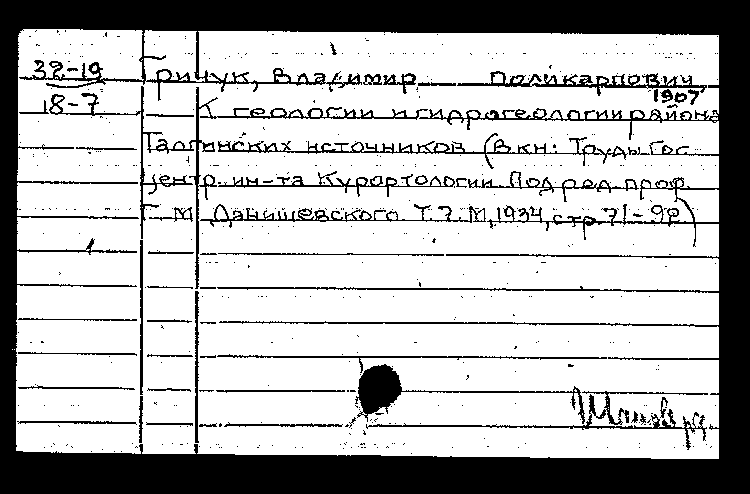 32-19 Гричук, Владимир Поликарпович
1907
18-7 К геологии и гидрогеологии района
Талгинских источников (В кн: Труды Гос
центр. ин-та Курортологии Под ред. проф.
Г. М Данишевского Т. 7. М, 1934, стр. 71-92)
1